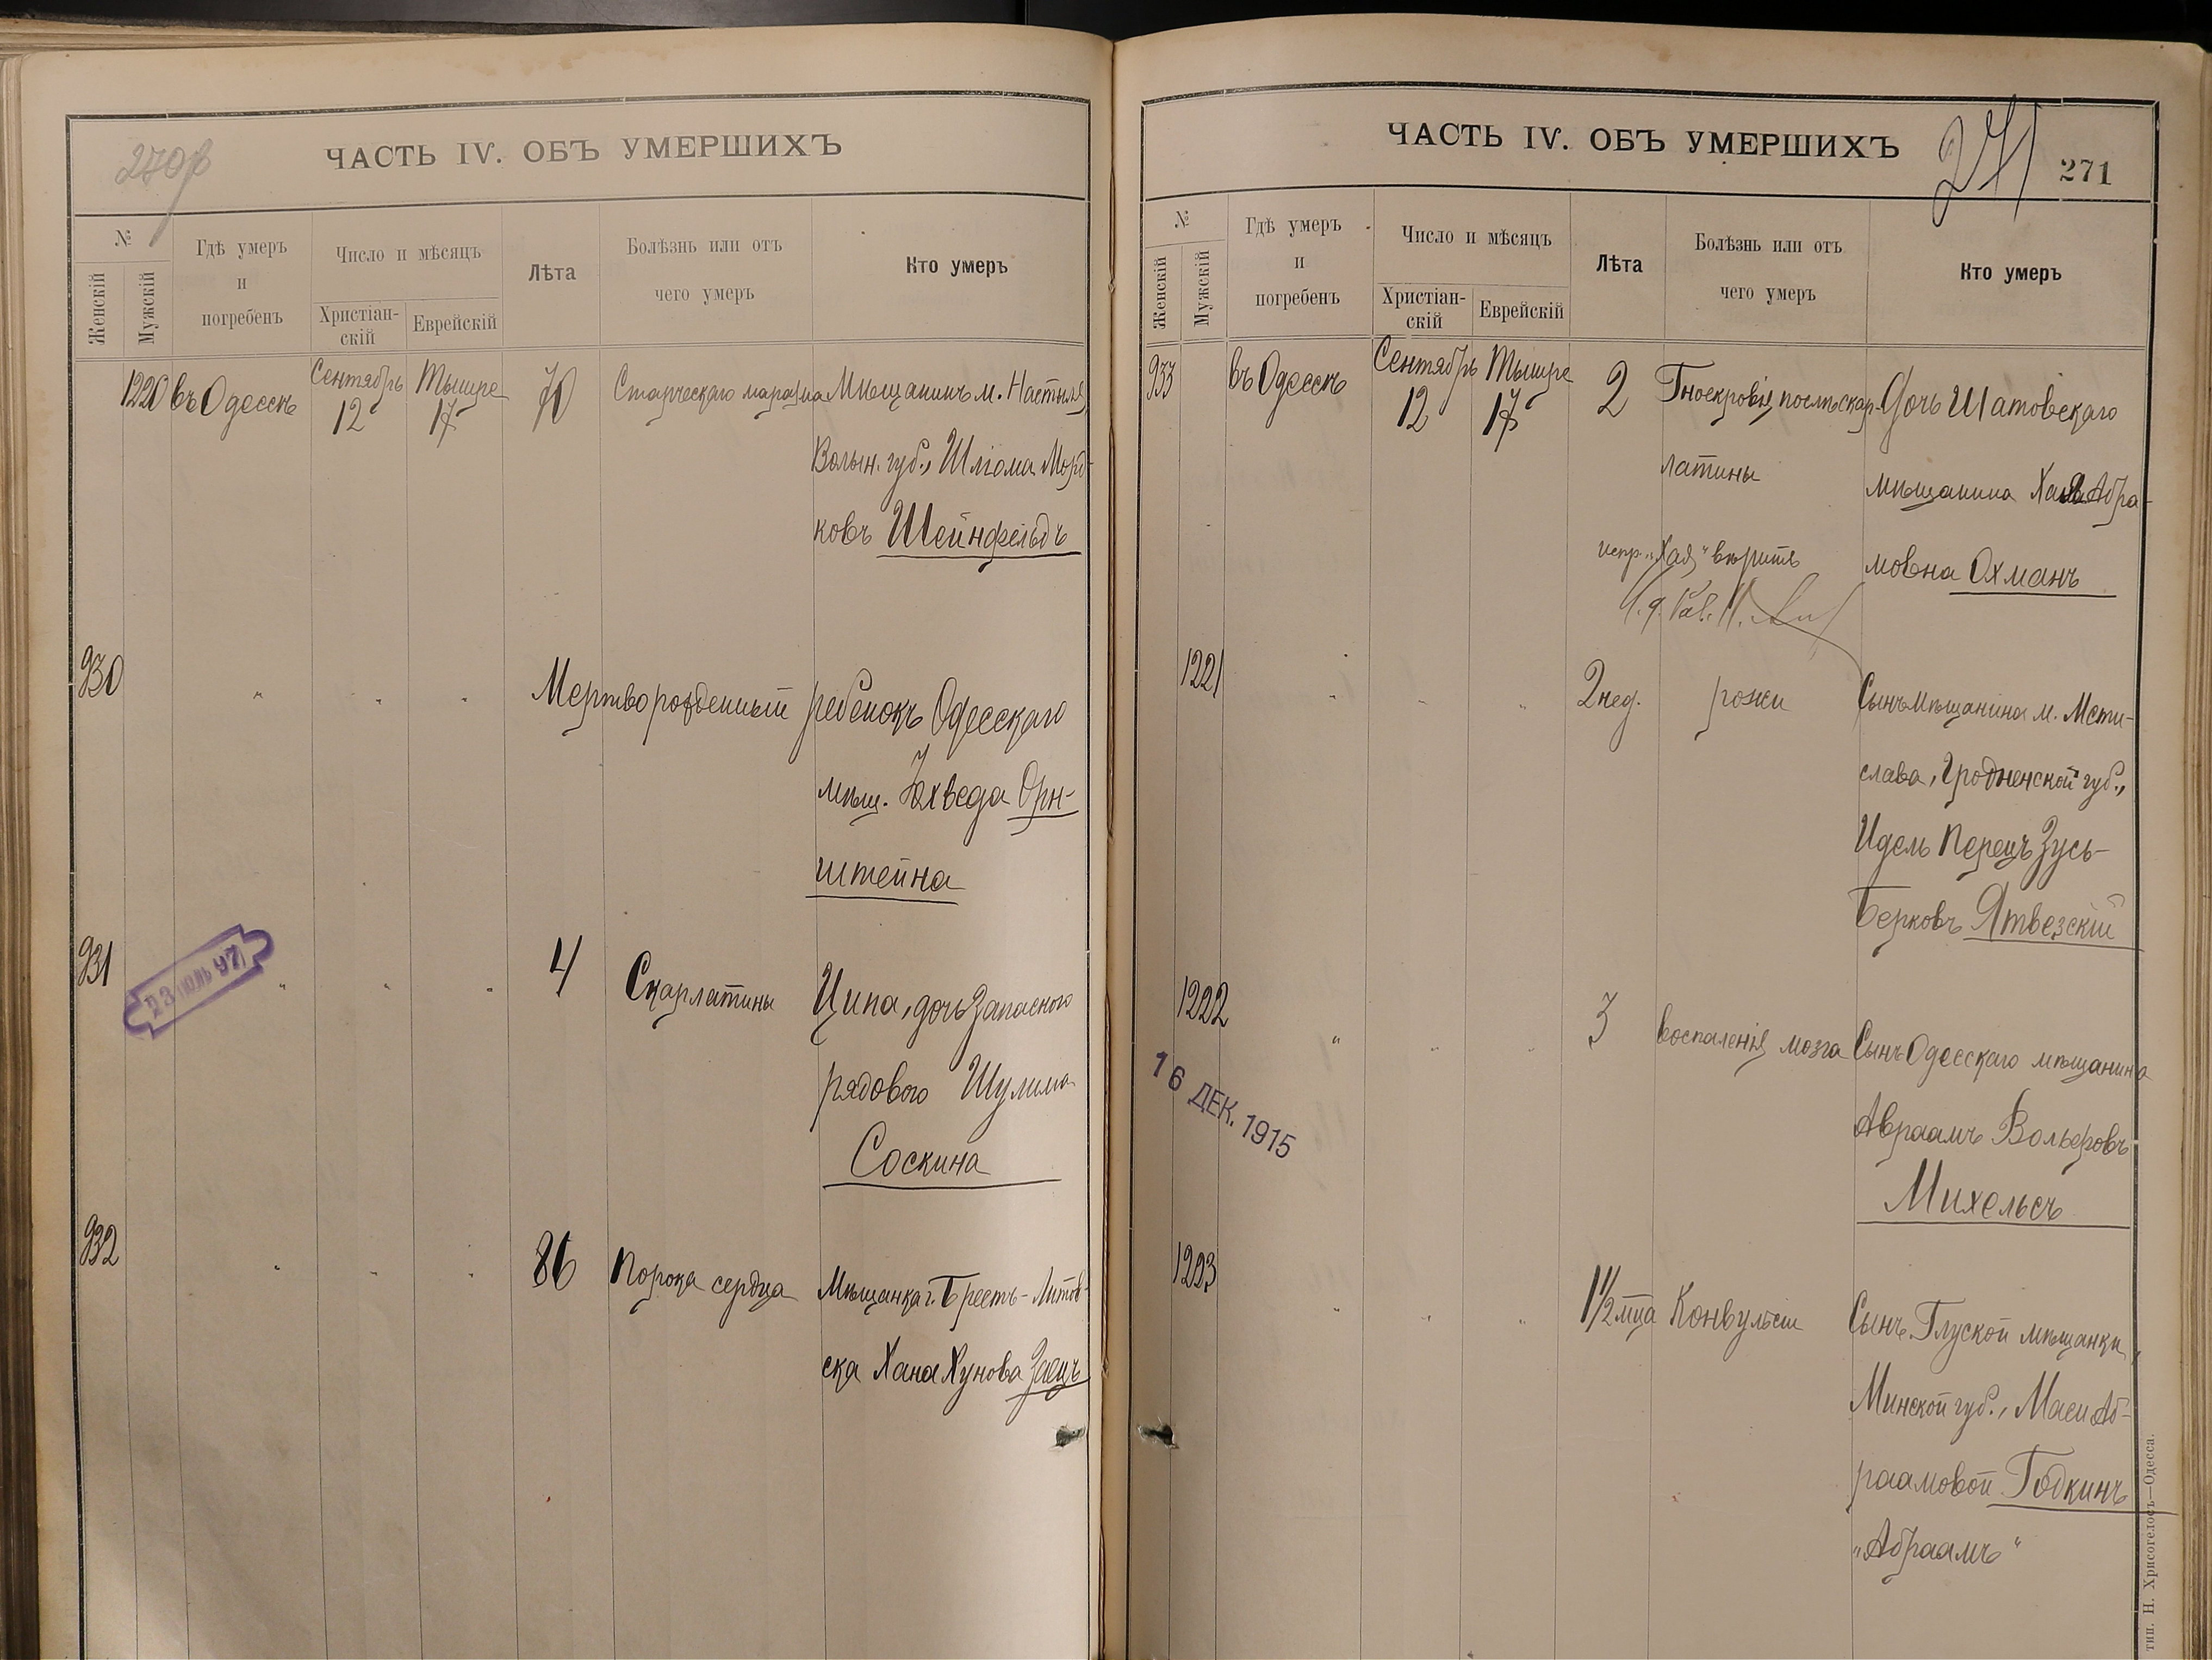 270об
ЧАСТЬ IV. ОБЪ УМЕРШИХЪ
№
Женскій
Мужскій
Гдѣ умеръ
и
погребенъ
Число и мѣсяцъ
Христіан-
скій
Еврейскій
Лѣта
Болѣзнь или отъ
чего умеръ
Кто умеръ
1220 въ Одессѣ Сентябрь 12 Тышре 17 70 Старческаго маразма Мѣщанинъ м.
Волын. губ., Шліома Морд-
ковъ Шейнфельдъ
930 " " " Мертворожденный ребенокъ Одесскаго
мѣщ. Іохведа Орн-
штейна
931 " " " 4 Скарлатины Ципа, дочь запаснаго
рядового Шулима
Соскина
23 ІЮЛЬ 97
932 " " " 86 Порока сердца Мѣщанка г. Брестъ-Литов-
ска Хана Хунова Заецъ
ЧАСТЬ IV. ОБЪ УМЕРШИХЪ
271
271
№
Женскій
Мужскій
Гдѣ умеръ
и
погребенъ
Число и мѣсяцъ
Христіан-
скій
Еврейскій
Лѣта
Болѣзнь или отъ
чего умеръ
Кто умеръ
933 въ Одессѣ Сентябрь 12 Тышре 17 2 Гноекровія, послѣ скар- Дочь Шатовскаго
латины мѣщанина Хая Абра-
испр. „Хая" вѣрить мовна Охманъ
1221 " " " 2 нед. рожи Сынъ мѣщанина м. Мсти-
слава, Гродненской губ.,
Идель Перецъ Зусь-
Берковъ Ятвезскій
1222 " " " 3 воспаленія мозга Сынъ Одесскаго мѣщанина
16 ДЕК. 1915
Авраамъ Вольфовъ
Михельсъ
1223 " " " 1 1/2 мца Конвульсіи Сынъ Глуской мѣщанки,
Минской губ., Маси Аб-
раамовой Годкинъ
„Абраамъ"
тип. Н. Хрисогелосъ—Одесса.